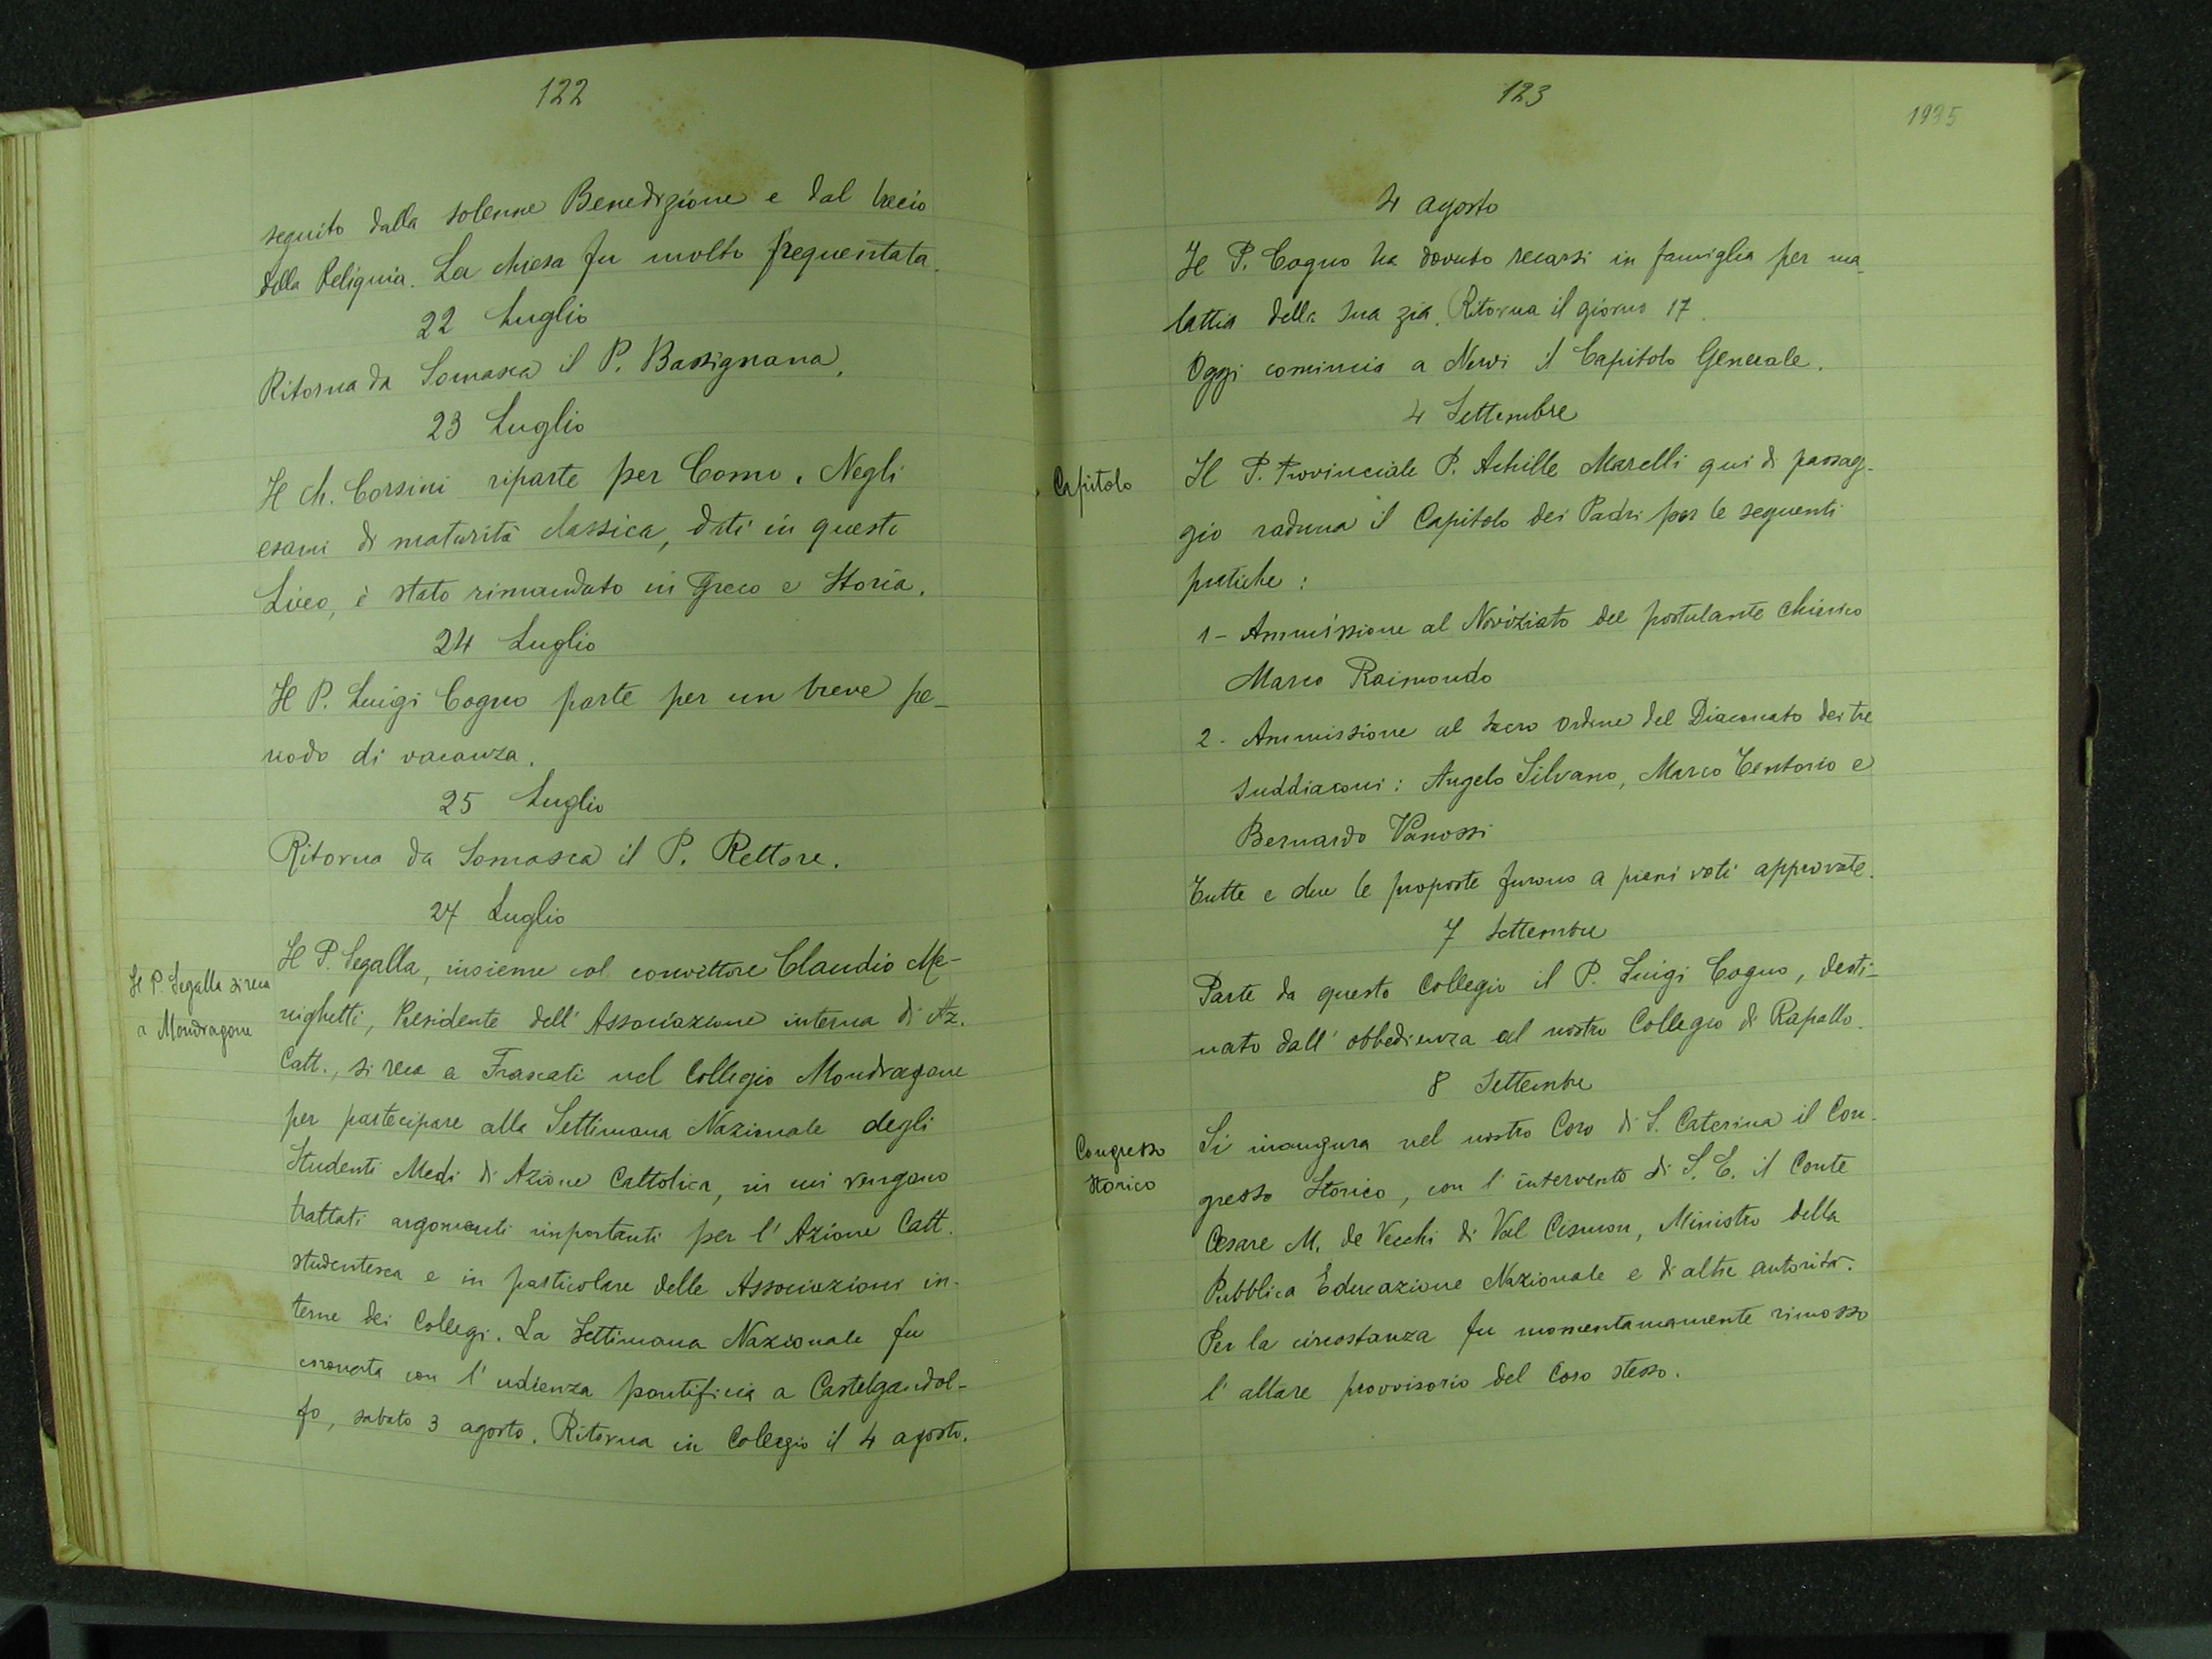 122
seguito dalla solenne Benedizione e dal bacio
della Reliquia. La chiesa fu molto frequentata.
22 Luglio
Ritorna da Somasca il P. Bassignana.
23 Luglio
Il Ch. Corsini riparte per Como. Negli
esami di maturità classica, dati in questo
Liceo, è stato rimandato in Greco e Storia.
24 Luglio
Il P. Luigi Cogno parte per un breve pe-
riodo di vacanza.
25 Luglio
Ritorna da Somasca il P. Rettore.
27 Luglio
Il P. Segalla si reca
a Mondragone
Il P. Segalla, insieme col convittore Claudio Me-
nighetti, Presidente dell' Associazione interna di Az.
Catt., si reca a Frascati nel Collegio Mondragone
per partecipare alla Settimana Nazionale degli
Studenti Medi di Azione Cattolica, in cui vengono
trattati argomenti importanti per l' Azione Catt.
studentesca e in particolare delle Associazioni in-
terne dei Collegi. La Settimana Nazionale fu
coronata con l' udienza pontificia a Castelgandol-
fo, sabato 3 agosto. Ritorna in Collegio il 4 agosto.
123
1935
4 agosto
Il P. Cogno ha dovuto recarsi in famiglia per ma-
lattia della sua zia. Ritorna il giorno 17.
Oggi comincia a Nervi il Capitolo Generale.
4 Settembre
Capitolo
Il P. Provinciale P. Achille Marelli qui di passag-
gio raduna il Capitolo dei Padri per le seguenti
pratiche :
1 - Ammissione al Noviziato del postulante chierico
Marco Raimondo
2 - Ammissione al Sacro Ordine del Diaconato dei tre
suddiaconi : Angelo Silvano, Marco Tentorio e
Bernardo Vanossi
Tutte e due le proposte furono a pieni voti approvate.
7 Settembre
Parte da questo Collegio il P. Luigi Cogno, desti-
nato dall' obbedienza al nostro Collegio di Rapallo.
8 Settembre
Congresso
Storico
Si inaugura nel nostro Coro di S. Caterina il Con-
gresso Storico, con l' intervento di S. E. il Conte
Cesare M. de Vecchi di Val Cismon, Ministro della
Pubblica Educazione Nazionale e di altre autorità.
Per la circostanza fu momentamamente rimosso
l' altare provvisorio del Coro stesso.